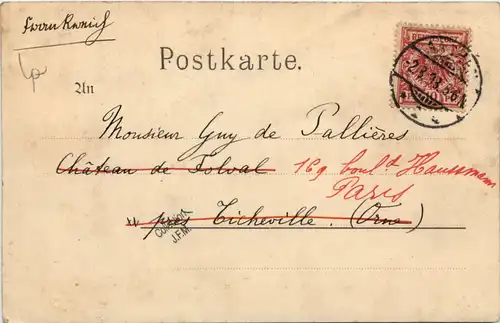 Frankreich
Postkarte.
An
Monsieur Guy de Pallières
Château de Folval 169 boul.d Haussmann
Paris
près Ticheville. (Orne)
Collection
J.F.M.